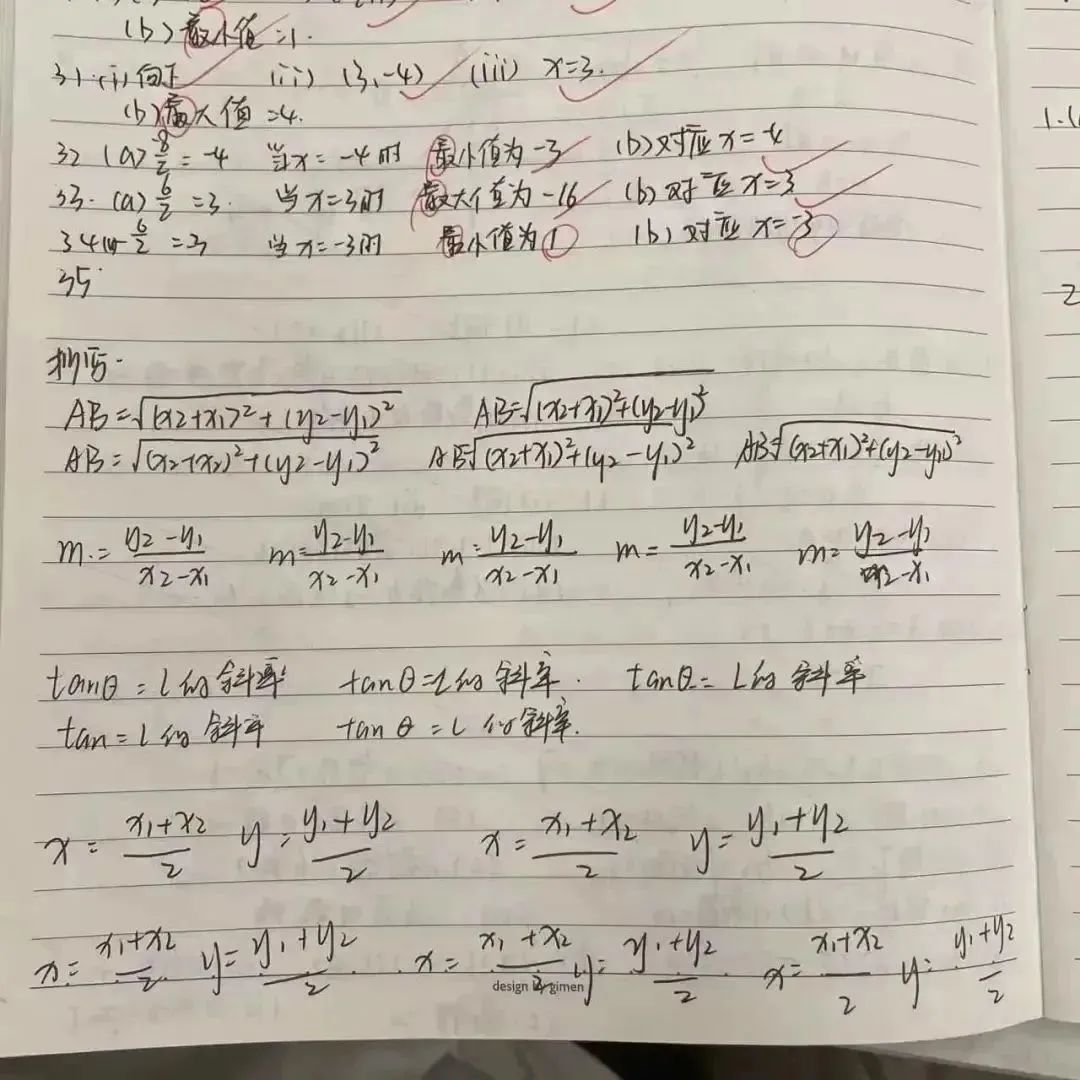 (b) 最小值 =1.
31.(i) 向下 (ii) (3,-4) (iii) x=3.
(b) 最大值 =4.
32 (a) 8/2 = -4 当x = -4时 最小值为 -3 (b) 对应 x = -4
33. (a) 6/2 = 3. 当x=3时 最大值为 -16 (b) 对应 x=3
34 6/2 = 3 当x=-3时 最小值为 1 (b) 对应 x = -3
35.
抄写.
AB = √(x2+x1)²+(y2-y1)² AB=√(x2+x1)²+(y2-y1)²
AB = √(x2+x2)²+(y2-y1)² AB=√(x2+x1)²+(y2-y1)² AB=√(x2+x1)²+(y2-y1)²
m = (y2-y1)/(x2-x1) m = (y2-y1)/(x2-x1) m = (y2-y1)/(x2-x1) m = (y2-y1)/(x2-x1) m = (y2-y1)/(x2-x1)
tanθ = L的斜率 tanθ=L的斜率. tanθ = L的斜率
tan = L的斜率 tanθ = L的斜率.
x = (x1+x2)/2 y = (y1+y2)/2 x = (x1+x2)/2 y = (y1+y2)/2
x = (x1+x2)/2 y = (y1+y2)/2 x = (x1+x2)/2 y = (y1+y2)/2 x = (x1+x2)/2 y = (y1+y2)/2
design by gimen
1.(
2